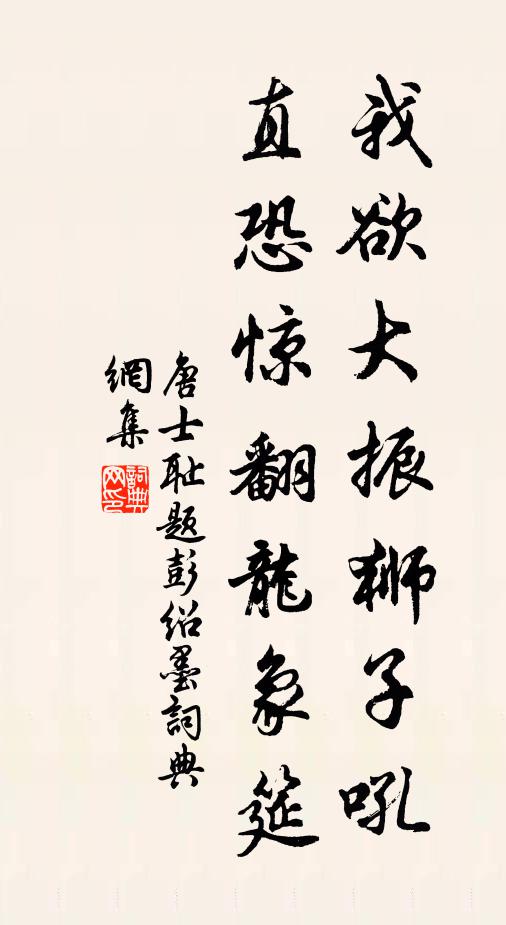 我欲大振狮子吼
直恐惊翻龍象筵
唐士耻题彭绍墨詞典
網集
詞典
网印